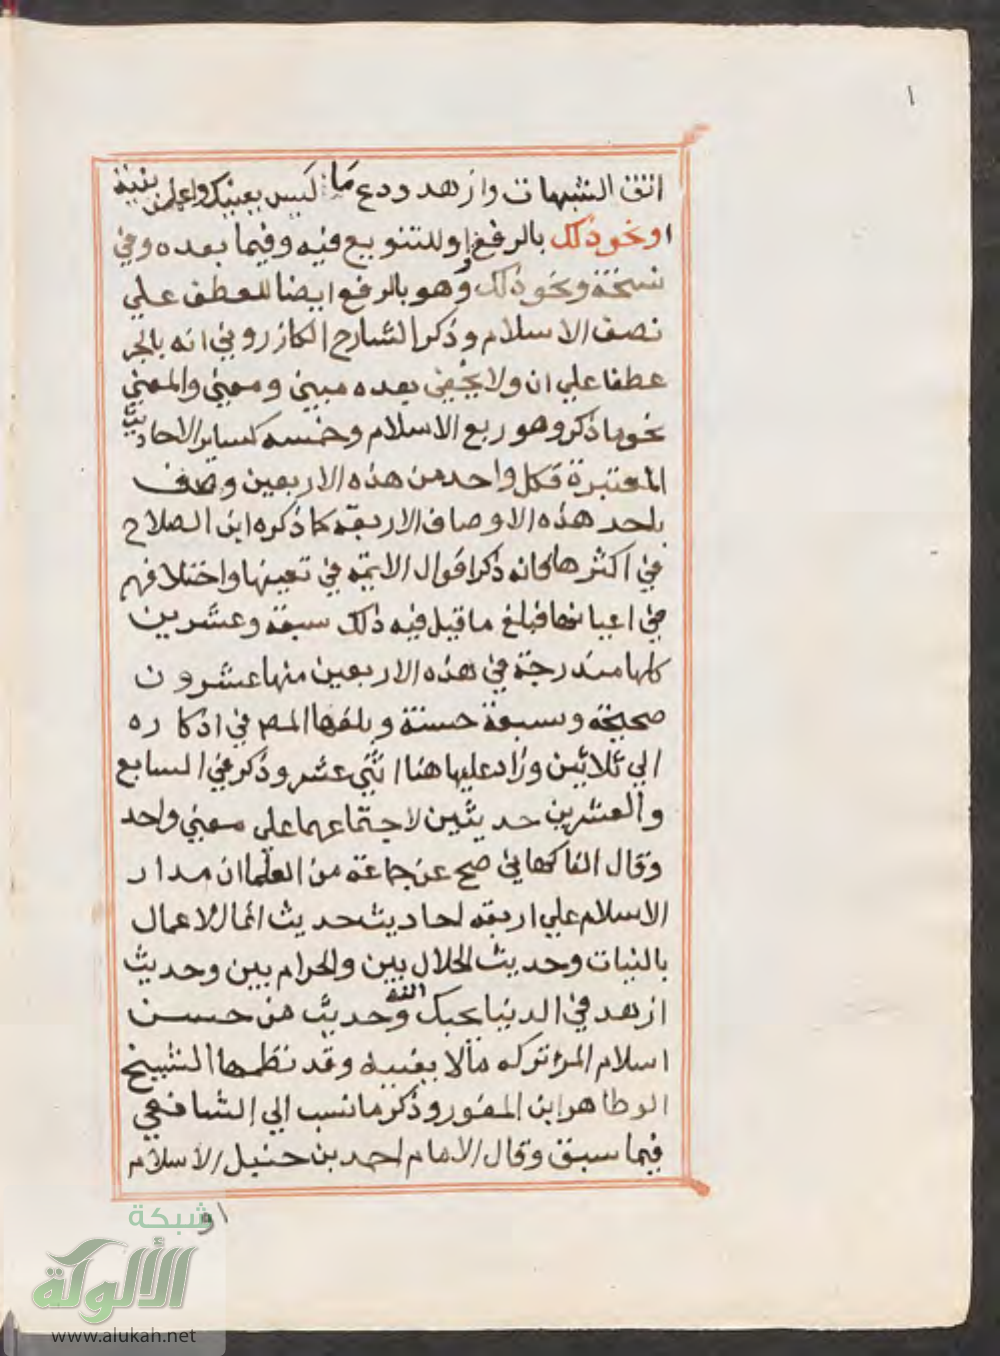 ١
اتق الشبهات وازهد ودع ما ليس يعنيك واعلمن بنية
او نحو ذلك بالرفع او للتنويع فيه وفيما بعده وفي
نسخة ونحو ذلك وهو بالرفع ايضا للعطف علي
نصف الاسلام وذكر الشارح الكازروني انه بالجر
عطفا علي ان ولا يخفي بعده مبني ومعني والمعني
نحو ما ذكر وهو ربع الاسلام وخمسه كساير الاحاديث
المعتبرة فكل واحد من هذه الاربعين وصف
باحد هذه الاوصاف الاربعة كما ذكره ابن الصلاح
في اكثرها فانه ذكر اقوال الايمة في تعينها واختلافهم
في اعيانها فبلغ ما قيل فيه ذلك سبعة وعشرين
كلها مندرجة في هذه الاربعين منها عشرون
صحيحة وسبعة حسنة وبلغها المص في اذكاره
الي ثلاثين وزاد عليها هنا اثني عشر وذكر في السابع
والعشرين حديثين لاجتماعهما علي معني واحد
وقال الفاكهاني صح عن جماعة من العلما ان مدار
الاسلام علي اربعة احاديث حديث انما الاعمال
بالنيات وحديث الحلال بين والحرام بين وحديث
ازهد في الدنيا يحبك الله وحديث من حسن
اسلام المرء تركه ما لا يعنيه وقد نظمها الشيخ
ابو طاهر ابن المفور وذكر ما نسب الي الشافعي
فيما سبق وقال الامام احمد بن حنبل الاسلام
او
شبكة
الألوكة
www.alukah.net